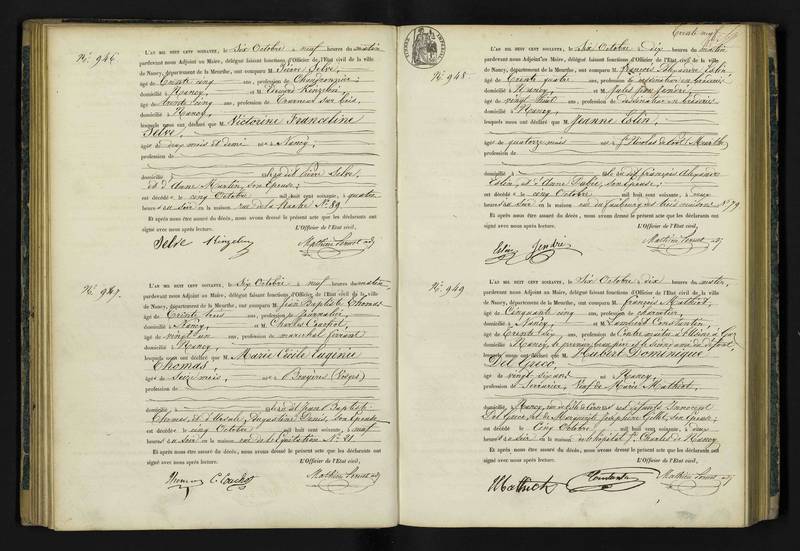 N.º 946
L'AN MIL HUIT CENT SOIXANTE, le Six Octobre à neuf heures du matin
pardevant nous Adjoint au Maire, délégué faisant fonctions d'Officier de l'Etat civil de la ville
de Nancy, département de la Meurthe, ont comparu M. Pierre Selve,
âgé de Trente cinq ans, profession de Chaudronnier;
domicilié à Nancy, et M.
âgé de trente cinq ans, profession de Tourneur sur bois,
domicilié à Nancy,
lesquels nous ont déclaré que M. Victorine Françoeline
Selve,
âgée de deux mois et demi née à Nancy,
profession de
domicilié à dit Pierre Selve,
et d'Anne Martin, son épouse;
est décédée le cinq Octobre mil huit cent soixante, à quatre
heures du soir en la maison rue de la N.º 89.
Et après nous être assuré du décès, nous avons dressé le présent acte que les déclarants ont
signé avec nous après lecture. L'Officier de l'Etat civil,
Selve
N.º 947.
L'AN MIL HUIT CENT SOIXANTE, le Six Octobre à neuf heures du matin,
pardevant nous Adjoint au Maire, délégué faisant fonctions d'Officier de l'Etat civil de la ville
de Nancy, département de la Meurthe, ont comparu M. Jean Baptiste Thomas
âgé de Trente trois ans, profession de Journalier,
domicilié à Nancy, et M. Charles
âgé de vingt un ans, profession de maréchal ferrant
domicilié à Nancy,
lesquels nous ont déclaré que M. Marie Cécile Eugénie
Thomas,
âgée de Seize mois, née à Bruyères (Vosges)
profession de
domicilié à dit Jean Baptiste
Thomas, et d'Ursule Augustine son épouse
est décédée le cinq Octobre mil huit cent soixante, à neuf
heures du soir en la maison rue de l'Equitation N.º 21.
Et après nous être assuré du décès, nous avons dressé le présent acte que les déclarants ont
signé avec nous après lecture. L'Officier de l'Etat civil,
Thomas
N.º 948.
L'AN MIL HUIT CENT SOIXANTE, le Six Octobre à Dix heures du matin
pardevant nous Adjoint au Maire, délégué faisant fonctions d'Officier de l'Etat civil de la ville
de Nancy, département de la Meurthe, ont comparu M. François Alexandre
âgé de Trente quatre ans, profession de dessinateur en broderie
domicilié à Nancy, et M. Jules
âgé de vingt huit ans, profession de dessinateur en broderie
domicilié à Nancy,
lesquels nous ont déclaré que M. Jeanne
âgée de quatorze mois née à St Nicolas de Port (Meurthe)
profession de
domicilié à dit François Alexandre
son épouse;
est décédée le cinq Octobre mil huit cent soixante, à deux
heures du soir en la maison rue du faubourg des trois maisons N.º 79
Et après nous être assuré du décès, nous avons dressé le présent acte que les déclarants ont
signé avec nous après lecture. L'Officier de l'Etat civil,
N.º 949
L'AN MIL HUIT CENT SOIXANTE, le Six Octobre à Dix heures du matin,
pardevant nous Adjoint au Maire, délégué faisant fonctions d'Officier de l'Etat civil de la ville
de Nancy, département de la Meurthe, ont comparu M. François Mathiot,
âgé de Cinquante cinq ans, profession de charretier,
domicilié à Nancy, et M. Lambert Constantin
âgé de Trente six ans, profession de Contre maître à l'Usine à Gaz
domicilié à Nancy, le premier beau père et le second ami du défunt,
lesquels nous ont déclaré que M. Hubert Dominique
Del Greco,
âgé de vingt six ans né à Nancy,
profession de Serrurier, Veuf de Marie Mathiot,
domicilié à Nancy, fils de Innocent
Del Greco, et de Marguerite Joséphine son épouse;
est décédé le Cinq Octobre mil huit cent soixante, à deux
heures du soir en la maison de l'hôpital St Charles de Nancy
Et après nous être assuré du décès, nous avons dressé le présent acte que les déclarants ont
signé avec nous après lecture. L'Officier de l'Etat civil,
Constantin